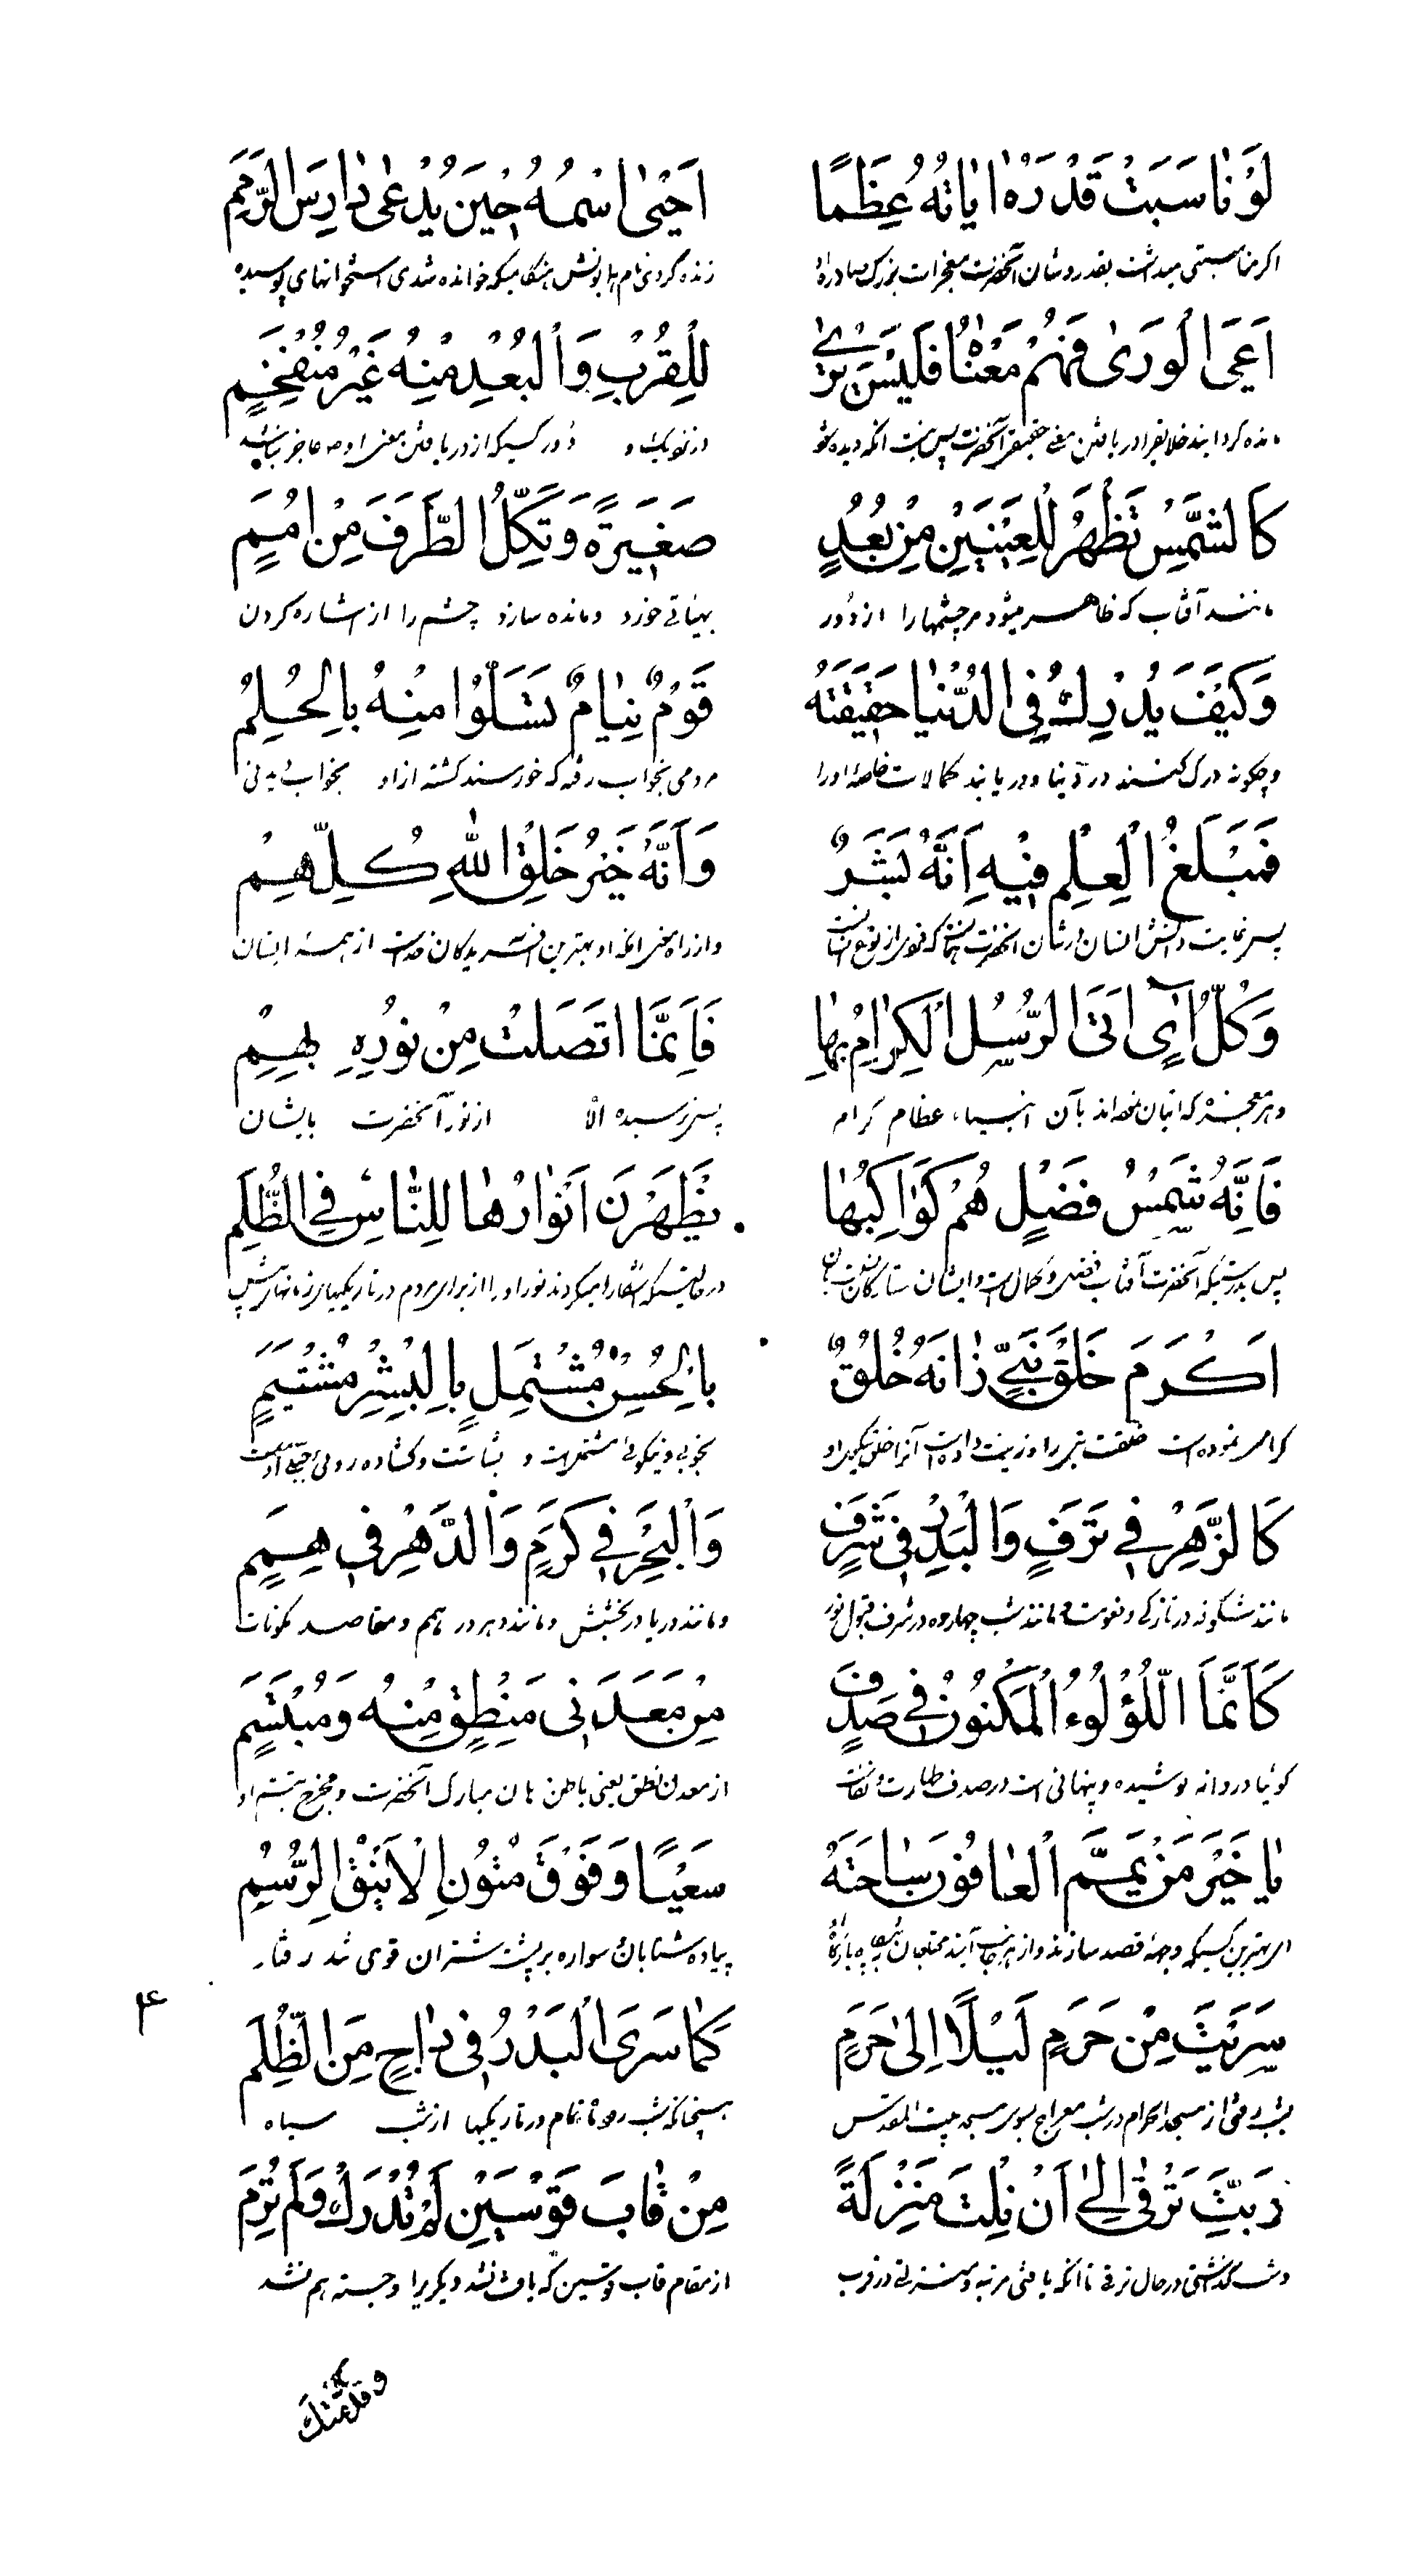 لَوْ نٰاسَبَتْ قَدْرَهُ اٰيٰاتُهُ عِظَمًا اَحْيَى اسْمُهُ حِيْنَ يُدْعٰى دٰارِسَ الرِّمَمِ
اكر مناسبتى ميداشت بقدر و شان آنحضرت معجزات بزرك صادره زنده كردى نام هنكاميكه خوانده شدى استخوانهاى پوسيده
اَعْيَى الْوَرىٰ فَهْمُ مَعْنٰاهُ فَلَيْسَ يُرىٰ لِلْقُرْبِ وَالْبُعْدِ مِنْهُ غَيْرُ مُنْفَخِمِ
مانده كردانيد خلايق را دريافتن معنى حقيقى آنحضرت پس نيست انكه ديده شود در نزديك و دور كسيكه از دريافتن معنى او عاجز نباشد
كَالشَّمْسِ تَظْهَرُ لِلْعَيْنَيْنِ مِنْ بُعُدٍ صَغِيْرَةً وَتَكِلُّ الطَّرْفَ مِنْ اُمَمٍ
مانند آفتاب كه ظاهر ميشود مر چشمها را از دور بهيئاتى خورد و مانده سازد چشم را از اشاره كردن
وَكَيْفَ يُدْرِكُ فِى الدُّنْيٰا حَقِيْقَتَهُ قَوْمٌ نِيٰامٌ تَسَلَّوْا مِنْهُ بِالْحُلُمِ
و چكونه درك كنند در دنيا و دريابند كمالات خاصهٔ او را مردمى بخواب رفته كه خورسند كشته از او بخواب ديدنى
فَمَبْلَغُ الْعِلْمِ فِيْهِ اَنَّهُ بَشَرٌ وَاَنَّهُ خَيْرُ خَلْقِ اللّٰهِ كُلِّهِمِ
پس نهايت دانش انسان در شان انحضرت از نوع انسانست و او بهترين آفريدكان خداست از همهٔ ايشان
وَكُلُّ اٰىٍ اَتَى الرُّسُلُ الْكِرٰامُ بِهٰا فَاِنَّمَا اتَّصَلَتْ مِنْ نُوْرِهِ بِهِمِ
و هر معجزه كه اتيان نموده‌اند بآن انبياء عظام كرام پس نرسيده الّا از نور آنحضرت بايشان
فَاِنَّهُ شَمْسُ فَضْلٍ هُمْ كَوٰاكِبُهٰا يُظْهِرْنَ اَنْوٰارَهٰا لِلنّٰاسِ فِى الظُّلَمِ
پس بدرستيكه آنحضرت آفتاب فضل و كمال است و ايشان ستاركان در حالتيكه آشكارا ميكردند نور او را از براى مردم در تاريكيهاى زمانهاى پيش
اَكْرِمْ خَلْقَ نَبِىٍّ زٰانَهُ خُلُقٌ بِالْحُسْنِ مُشْتَمِلٍ بِالْبِشْرِ مُتَّسِمٍ
كرامى نموده است خلقت نبى را و زينت داده است آنرا خلق نيكوى او بخوبى و نيكوئى مشتمل است و بشاشت و كشاده روئى
كَالزَّهْرِ فِى تَرَفٍ وَالْبَدْرِ فِى شَرَفٍ وَالْبَحْرِ فِى كَرَمٍ وَالدَّهْرِ فِى هِمَمٍ
مانند شكوفه در تازكى و نعومت و مانند شب چهارده در شرف قبول نور و مانند دريا در بخشش و مانند دهر در همم و مقاصد مكونات
كَاَنَّمَا اللُّؤْلُؤُ الْمَكْنُوْنُ فِى صَدَفٍ مِنْ مَعْدِنَى مَنْطِقٍ مِنْهُ وَمُبْتَسَمِ
كوئيا دردانه پوشيده و پنهانى است در صدف طهارت و از معدن نطق يعنى باطن دهان مبارك آنحضرت و مخرج تبسم او
يٰا خَيْرَ مَنْ يَمَّمَ الْعٰافُوْنَ سٰاحَتَهُ سَعْيًا وَفَوْقَ مُتُوْنِ الْاَيْنُقِ الرُّسُمِ
اى بهترين كسيكه قصد سازند و از هر جانب آيند محتاجان پياده شتابان و سواره بر پشت شتران قوى تند رفتار
سَرَيْتَ مِنْ حَرَمٍ لَيْلًا اِلٰى حَرَمٍ كَمٰا سَرَى الْبَدْرُ فِى دٰاجٍ مِنَ الظُّلَمِ
بشب رفتى از مسجد الحرام در شب معراج بسوى مسجد بيت المقدس همچنانكه بشب رود ماه تمام در تاريكيها از شب سياه
۴
وَبِتَّ تَرْقٰى اِلىٰ اَنْ نِلْتَ مَنْزِلَةً مِنْ قٰابَ قَوْسَيْنِ لَمْ تُدْرَكْ وَلَمْ تُرَمِ
و شب كذاشتى در حال ترقى تا انكه يافتى مرتبه و منزلتى در قرب از مقام قاب قوسين كه يافت نشد ديكريرا و جسته هم نشد
وَقَدَّمَتْكَ